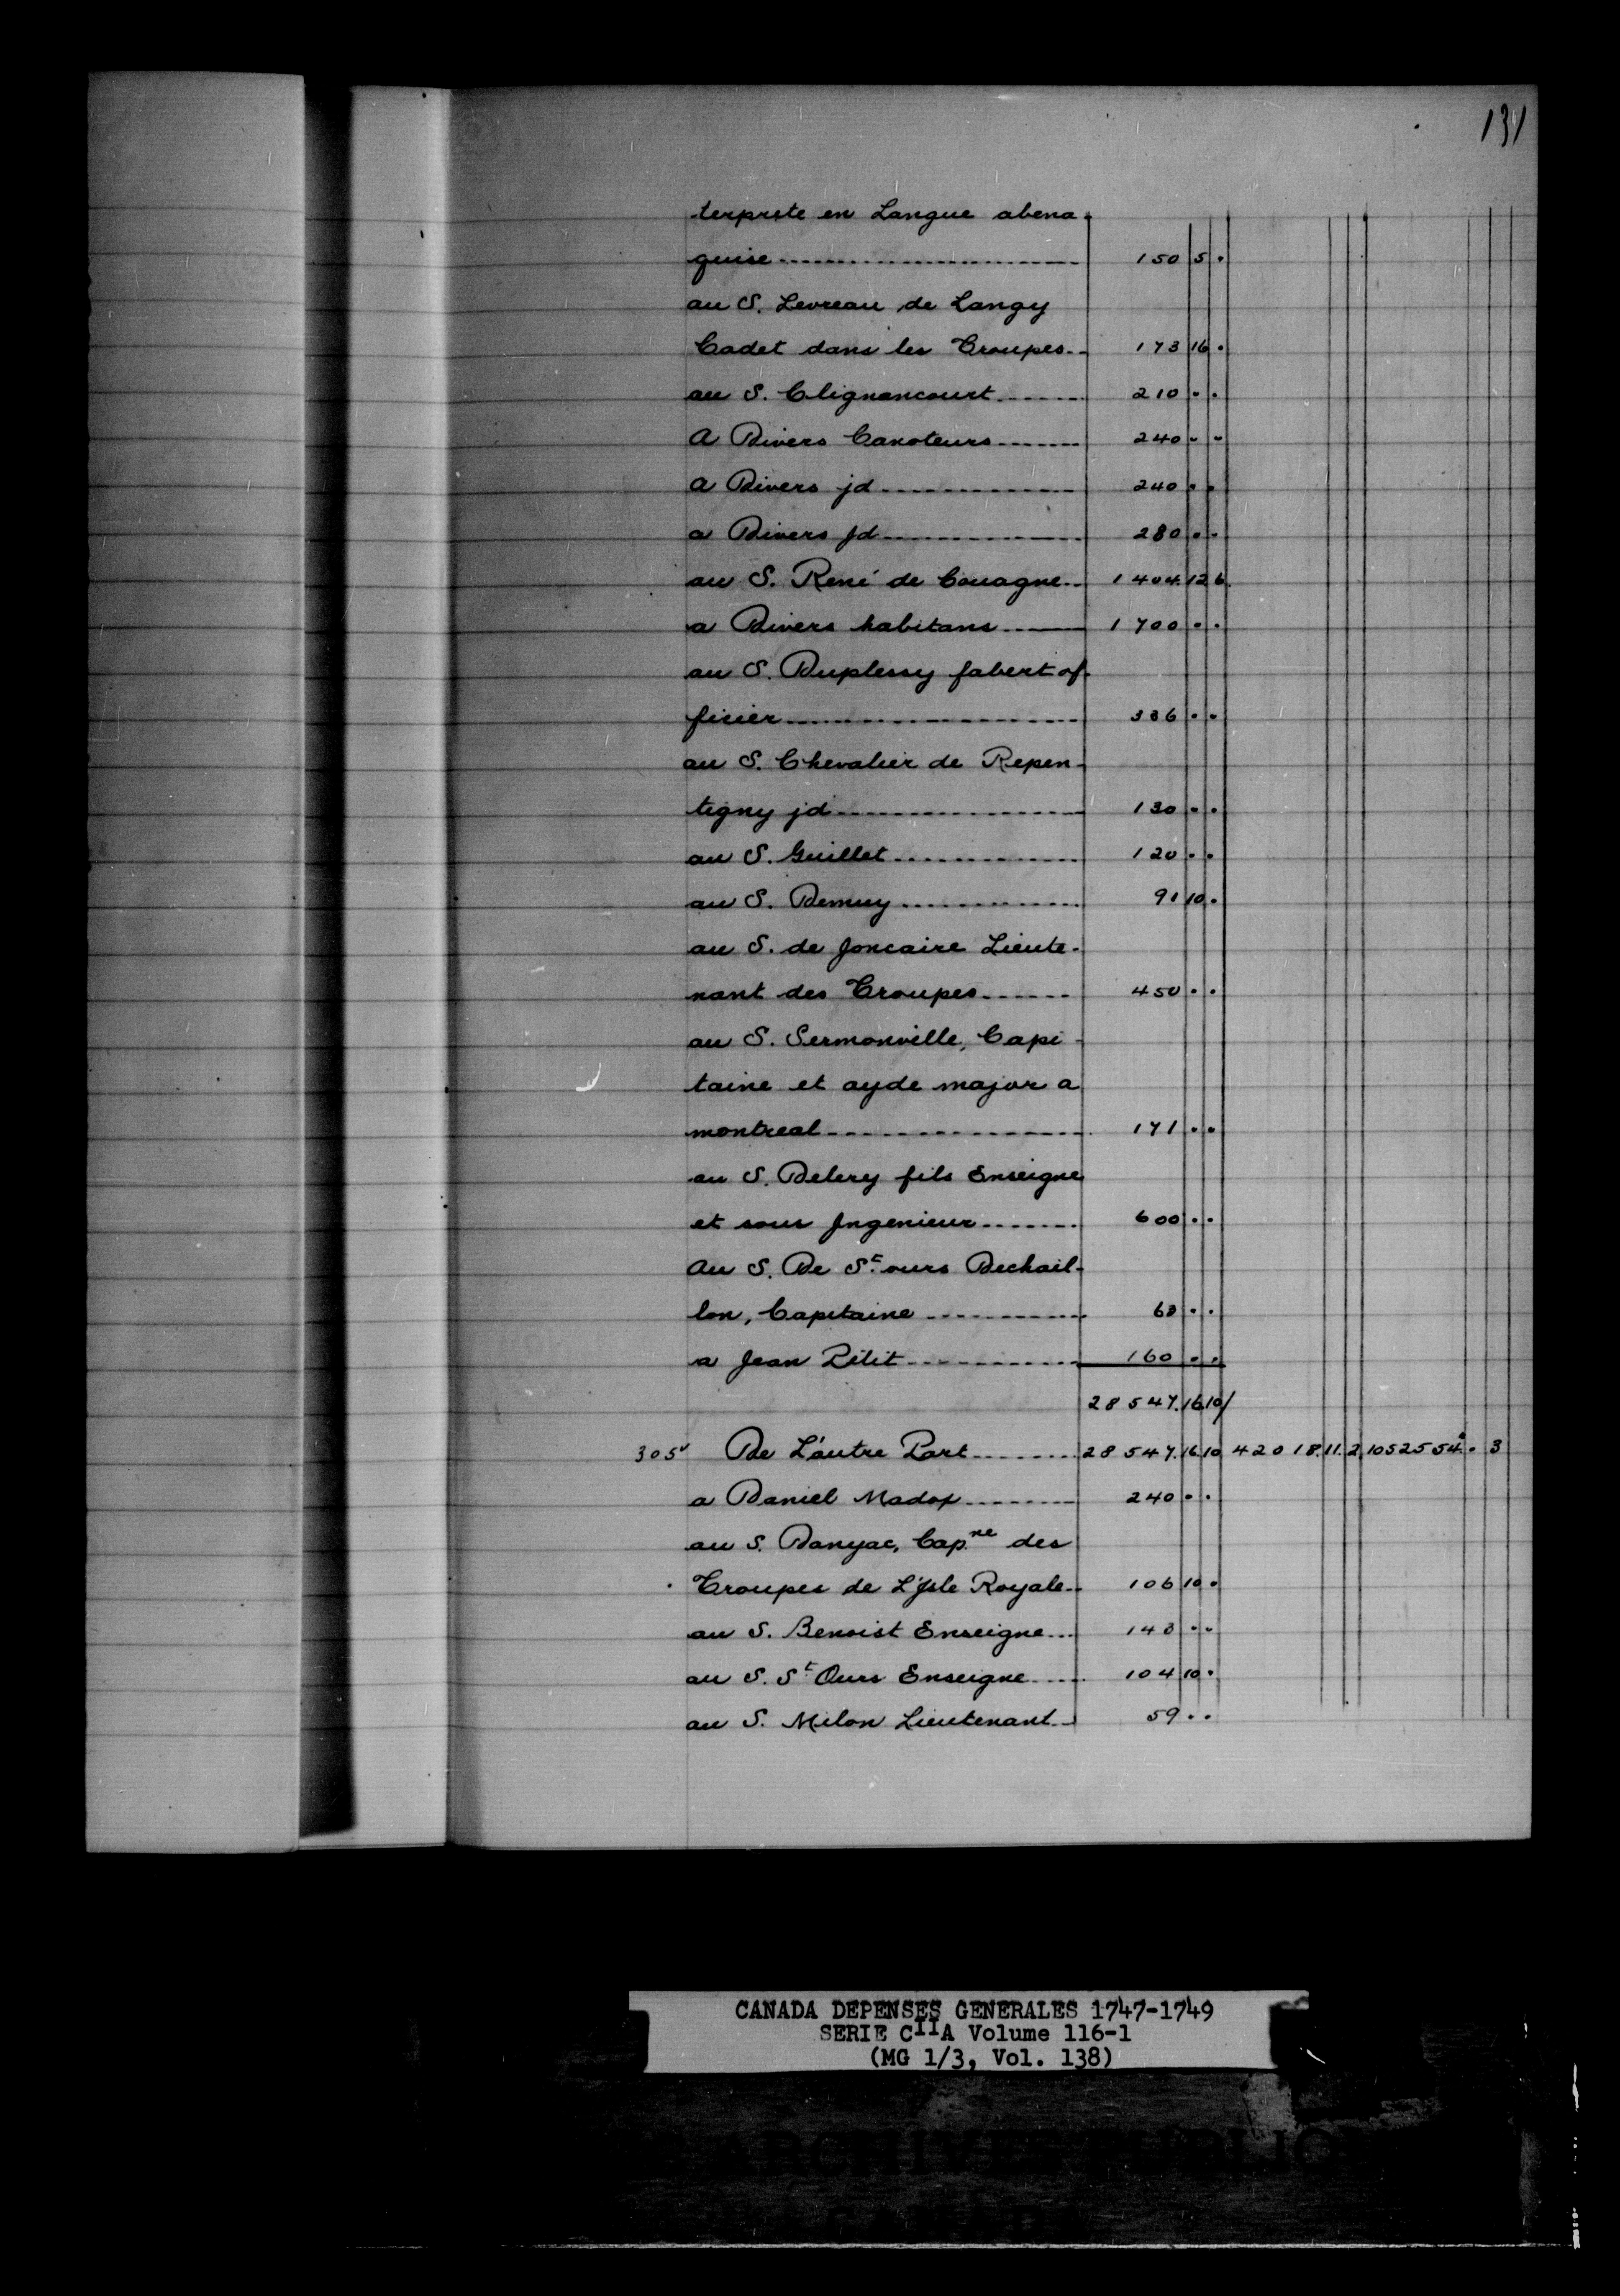 131
terprete en Langue abena-
quise 150 5 .
au S. Levreau de Langy
Cadet dans les Troupes 173 16 .
au S. Clignancourt 210 . .
A Divers Canoteurs 240 . .
a Divers jd 240 . .
a Divers Jd 280 . .
au S. René de Couagne 1404. 12 6.
a Divers habitans 1700 . .
au S. Duplessy fabert of-
ficier 336 . .
au S. Chevalier de Repen-
tigny jd 130 . .
au S. Guillet 120 . .
au S. Demuy 91 10 .
au S. de Joncaire Lieute-
nant des Troupes 450 . .
au S. Sermonville, Capi-
taine et ayde major a
montreal 171 . .
au S. Delery fils Enseigne
et sous Jngenieur 600 . .
Au S. De St. ours Dechail-
lon, Capitaine 63 . .
a Jean Pétit 160 . .
28547. 16 10/
305v De L'autre Part 28547. 16 10 420 18. 11. 2. 1052554. . 3
a Daniel Madox 240 . .
au S. Danyac, Capne des
Troupes de L'Jsle Royale 106 10 .
au S. Benoist Enseigne 143 . .
au S. St. Ours Enseigne 104 10 .
au S. Milon Lieutenant 59 . .
CANADA DEPENSES GENERALES 1747-1749
SERIE CIIA Volume 116-1
(MG 1/3, Vol. 138)